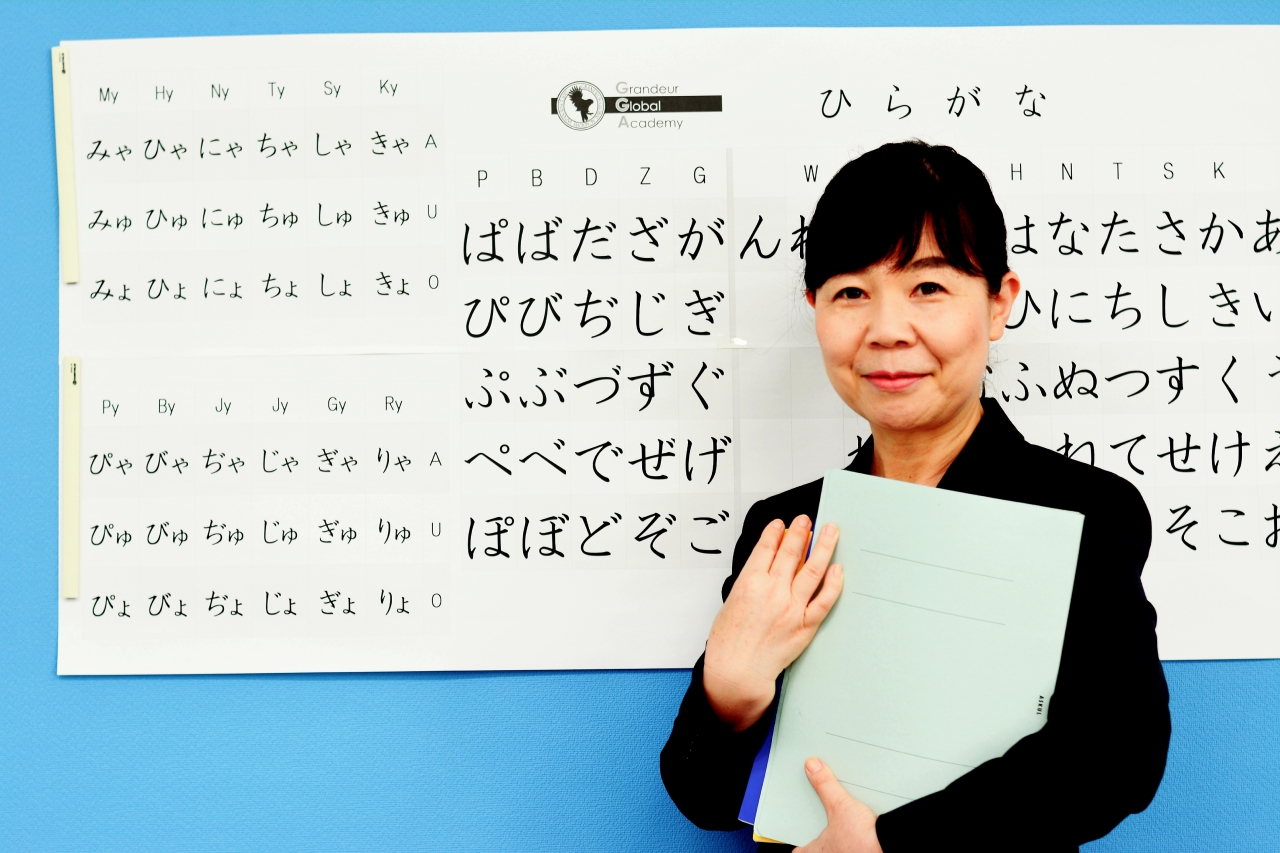 My Hy Ny Ty Sy Ky
みゃ ひゃ にゃ ちゃ しゃ きゃ A
みゅ ひゅ にゅ ちゅ しゅ きゅ U
みょ ひょ にょ ちょ しょ きょ O
Py By Jy Jy Gy Ry
ぴゃ びゃ ぢゃ じゃ ぎゃ りゃ A
ぴゅ びゅ ぢゅ じゅ ぎゅ りゅ U
ぴょ びょ ぢょ じょ ぎょ りょ O
Grandeur
Global
Academy
ひらがな
P B D Z G W H N T S K
ぱ ば だ ざ が ん は な た さ か あ
ぴ び ぢ じ ぎ ひ に ち し き い
ぷ ぶ づ ず ぐ ふ ぬ つ す く
ぺ べ で ぜ げ て せ け え
ぽ ぼ ど ぞ ご そ こ お
ASKUL